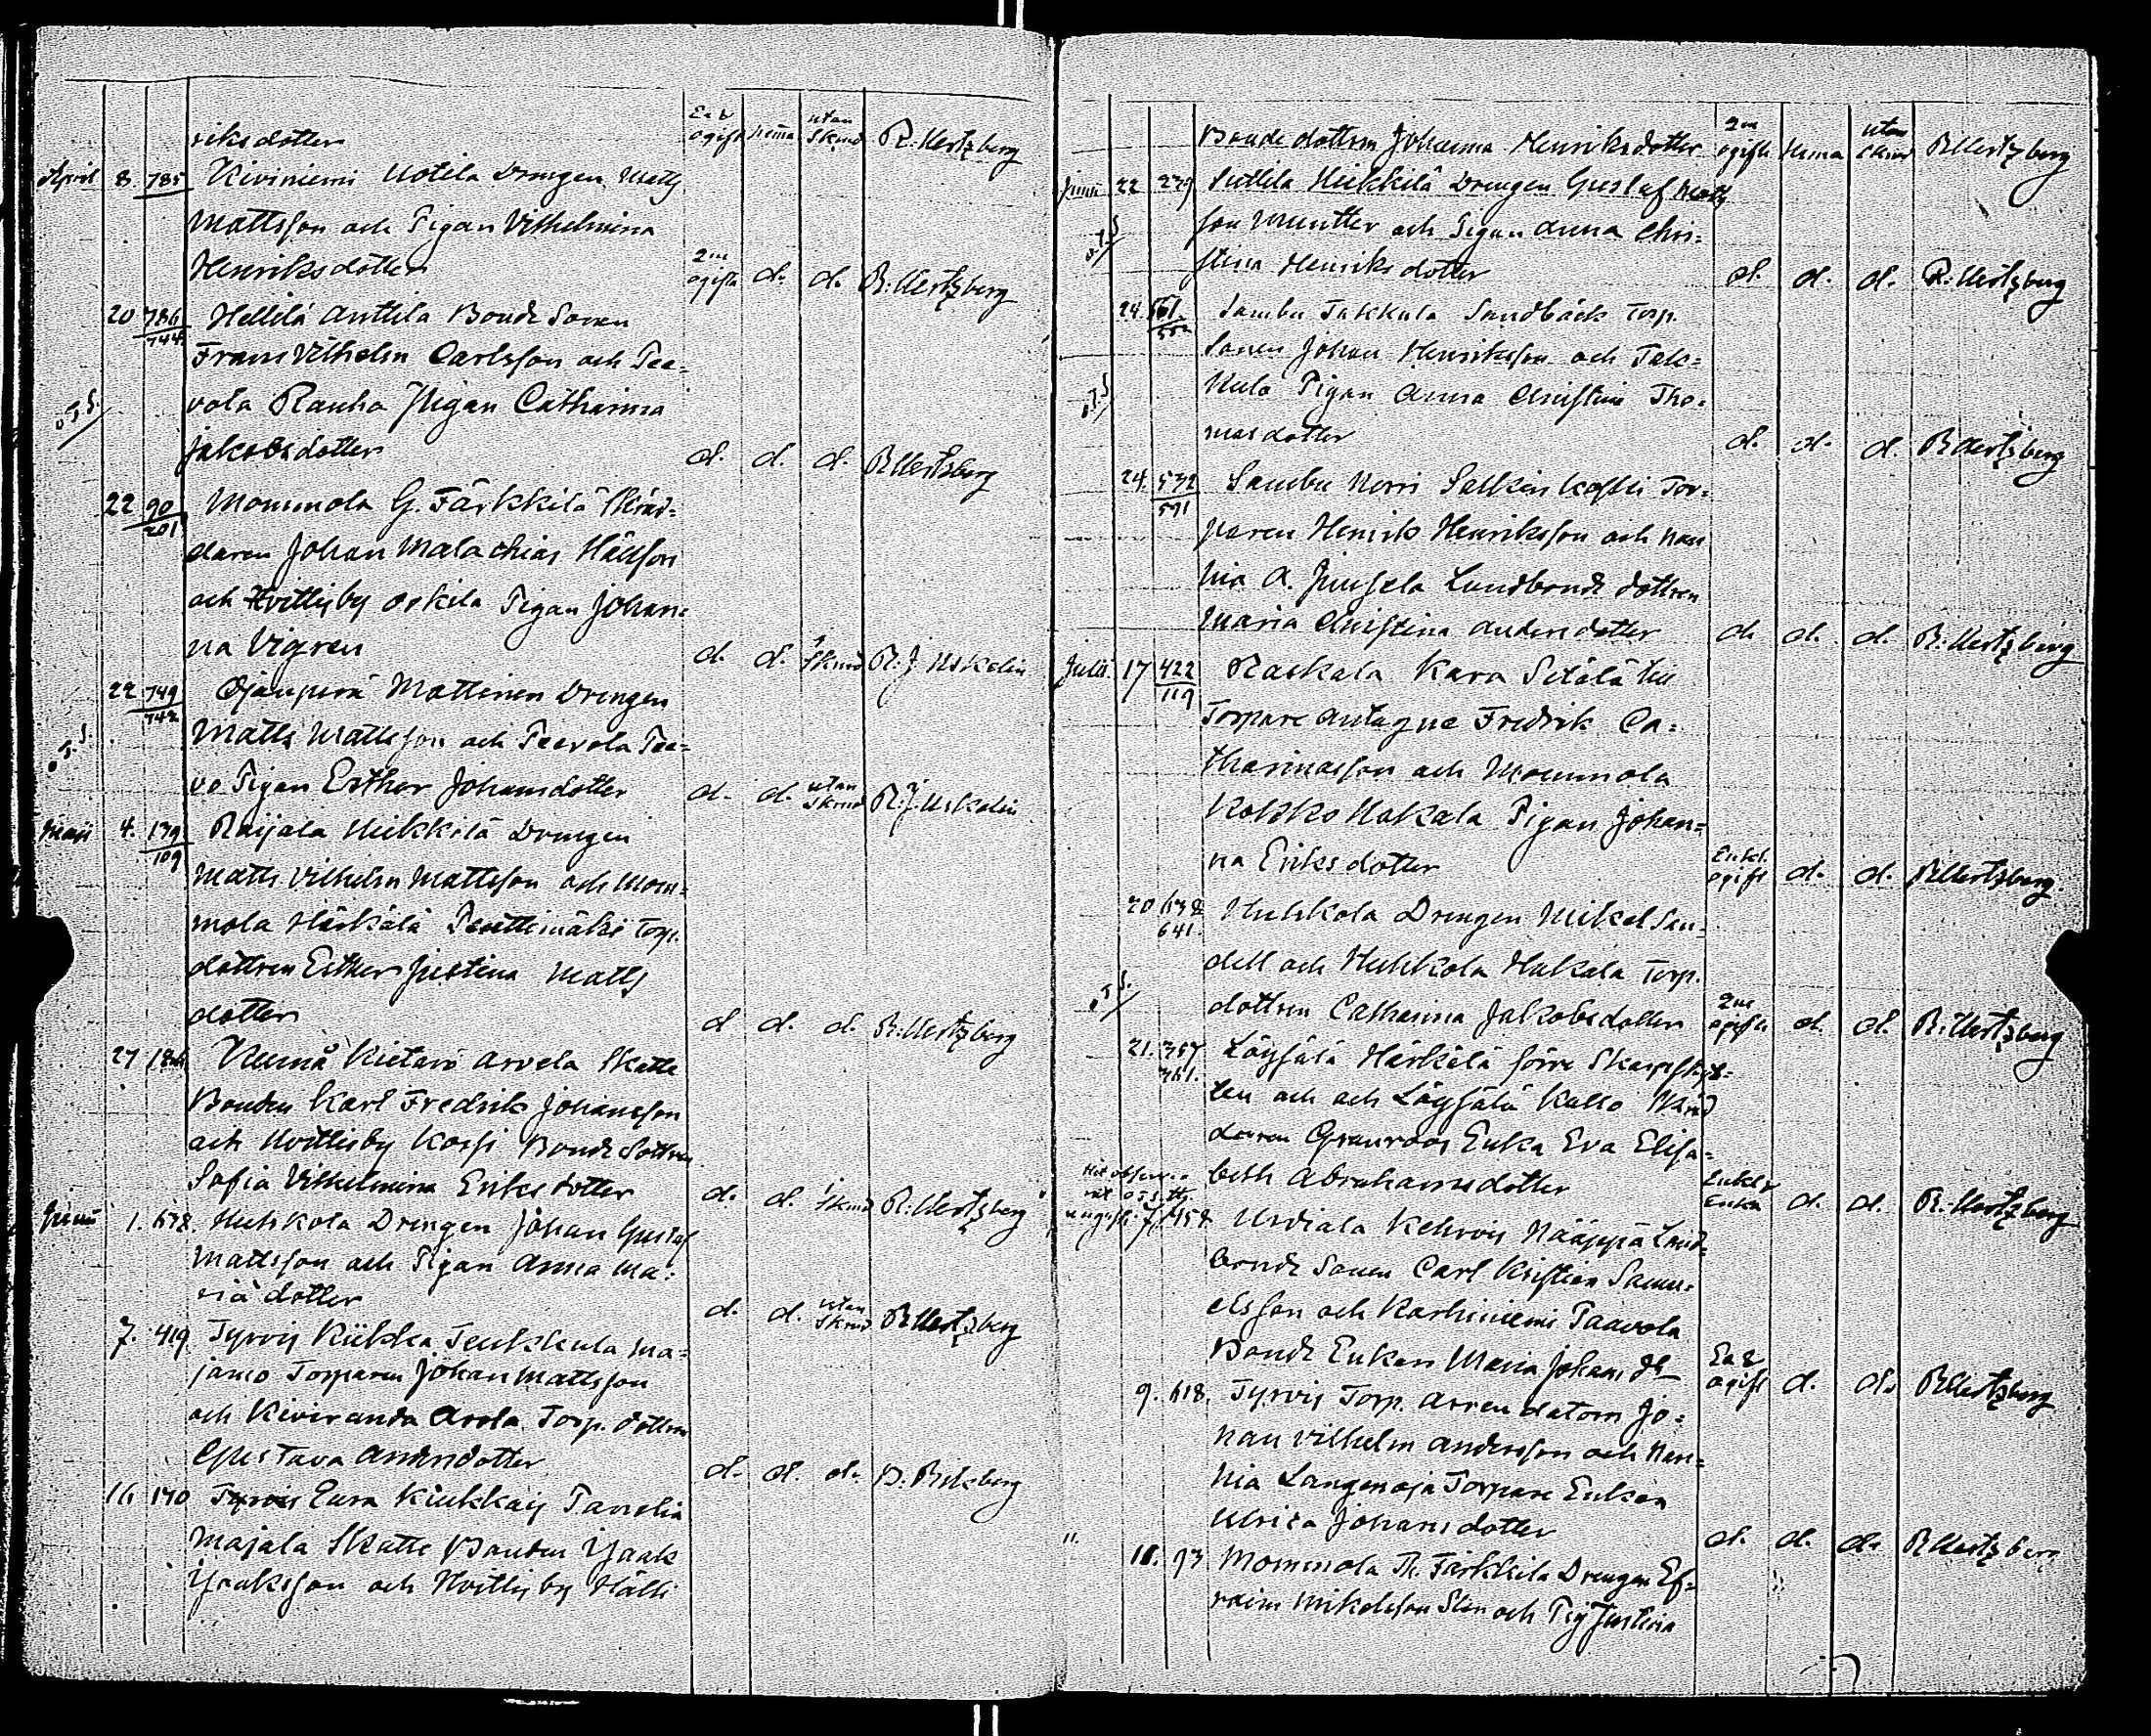 riksdotter ogift hema utan Skrud R. Hertzberg
April 8. 785 Kiviniemi Uotila Drengen Matts
Mattsson och Pigan Vilhelmina
Henriksdotter 2ne ogifta d. d. R. Hertzberg
20 786 Hellilä Anttila Bonde Sonen
744 Frans Vilhelm Carlsson och Pee=
vola Rauha Pigan Catharina
Jakobsdotter d. d. d. R Hertzberg
22 90 Mommola G. Färkkilä Skräd=
201 daren Johan Malachias Hällfors
och Hvittisby Oskila Pigan Johan=
na Vigren d. d. i Skrud R. J. Uskelin
22 749 Ojanperä Mattinen Drengen
742 Matts Mattsson och Peevola Pee=
vo Pigan Esther Johansdotter d. d. utan Skrud R. J. Uskelin
Maji 4. 179 Raijala Heikkilä Drengen
109 Matts Vilhelm Mattsson och Mom=
mola Härkälä Penttimäki Torp.
dottren Esther Justina Matts
dotter d d. d. R. Hertzberg
27 Kumå Kietari Arvela Skatte
Bonden Karl Fredrik Johansson
och Hvittisby Korsi Bonde dottren
Sofia Vilhelmina Eriksdotter d. d. i Skrud R. Hertzberg
Junii 1. 638. Huhkola Drengen Johan Gustaf
Mattsson och Pigan Anna Ma=
riä dotter d. d. utan Skrud R Hertzberg
7. 419 Tyrvis Kiikka Teukkula Ma=
jamo Torparen Johan Mattsson
och Kiviranda Arola Torp. dottren
Gustava Andersdotter d. d. d.
16 170 Eura Kiukkais Panelia
Majala Skatte Bonden Isaak
Isaksson och Hvittisby Hälli
Bonde dottren Johanna Henriksdotter 2ne ogifta hema utan Skrud R Hertzberg
Junii 22 279 Suttila Heikkilä Drengen Gustaf Matts
son Muntter och Pigan Anna Chri=
stina Henriksdotter d. d. d. R. Hertzberg
24. Sambu Takkula Sandbäck Torp.
Sonen Johan Henriksson och Tak=
kula Pigan Anna Christina Tho=
masdotter d. d. d. R Hertzberg
24. 532 Sambu Norri Torp=
591 paren Henrik Henriksson och Han
hia A. Jussela Landbonde dottren
Maria Christina Andersdotter d. d. d. R. Hertzberg
Julii 17 422 Raskala Kara Setälä till
119 Torpare antagne Fredrik Ca=
tharinasson och Mommola
Kokko Hakala Pigan Johan=
na Eriksdotter Enkl. ogift d. d. R Hertzberg.
20 638 Huhkola Drengen Mikel San=
641 dell och Huhkola Hakala Torp.
dottren Catharina Jakobsdotter 2ne ogifta d. d. R. Hertzberg
21. 357 Löysälä Härkälä förre Skarpskyt=
361. ten och och Löysälä Kallo Skräd
daren Granroos Enka Eva Elisa=
beth Abrahamsdotter Enkl. Enka d. d. R. Hertzberg
7. 458 Urdiala Kehrois Nääppä Land=
bonde Sonen Carl Kristian Samu=
elsson och Karhiniemi Paavola
Bonde Enkan Maria Johans dtr En & ogift d. d. R Hertzberg
9. 618. Tyrvis Torp. Arrendatorn Jo=
han Vilhelm Andersson och Han=
hia Langenoja Torpare Enkan
Ulrica Johansdotter d. d. d. R Hertzberg
18. 93 Mommola Th. Färkkilä Drengen Ef=
raim Mikelsson Sten och Pig Justina